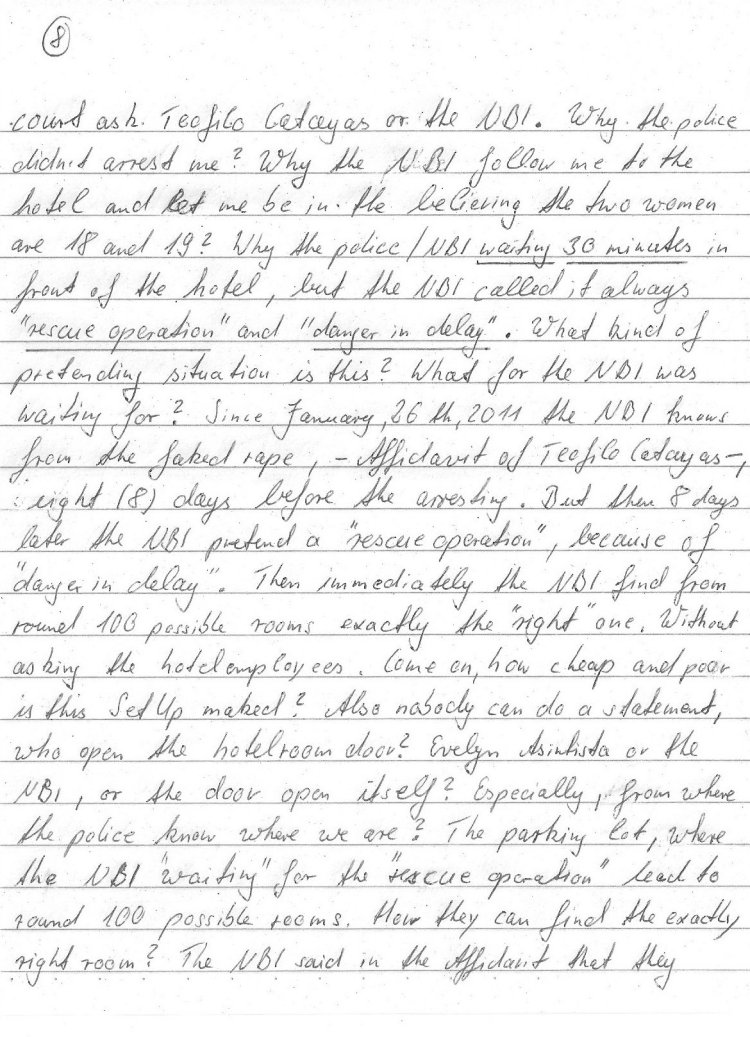 8
court ask Teofilo Catayas or the NBI. Why the police
didn't arrest me? Why the NBI follow me to the
hotel and let me be in the believing the two women
are 18 and 19? Why the police / NBI waiting 30 minutes in
front of the hotel, but the NBI called it always
"rescue operation" and "danger in delay". What kind of
pretending situation is this? What for the NBI was
waiting for? Since January, 26th, 2011 the NBI knows
from the faked rape, - Affidavit of Teofilo Catayas -,
eight (8) days before the arresting. But then 8 days
later the NBI pretend a "rescue operation", because of
"danger in delay". Then immediately the NBI find from
round 100 possible rooms exactly the "right" one. Without
asking the hotelemployees. Come on, how cheap and poor
is this Set Up maked? Also nobody can do a statement,
who open the hotelroom door? Evelyn or the
NBI, or the door open itself? Especially, from where
the police know where we are? The parking lot, where
the NBI "waiting" for the "rescue operation" lead to
round 100 possible rooms. How they can find the exactly
right room? The NBI said in the Affidavit that they